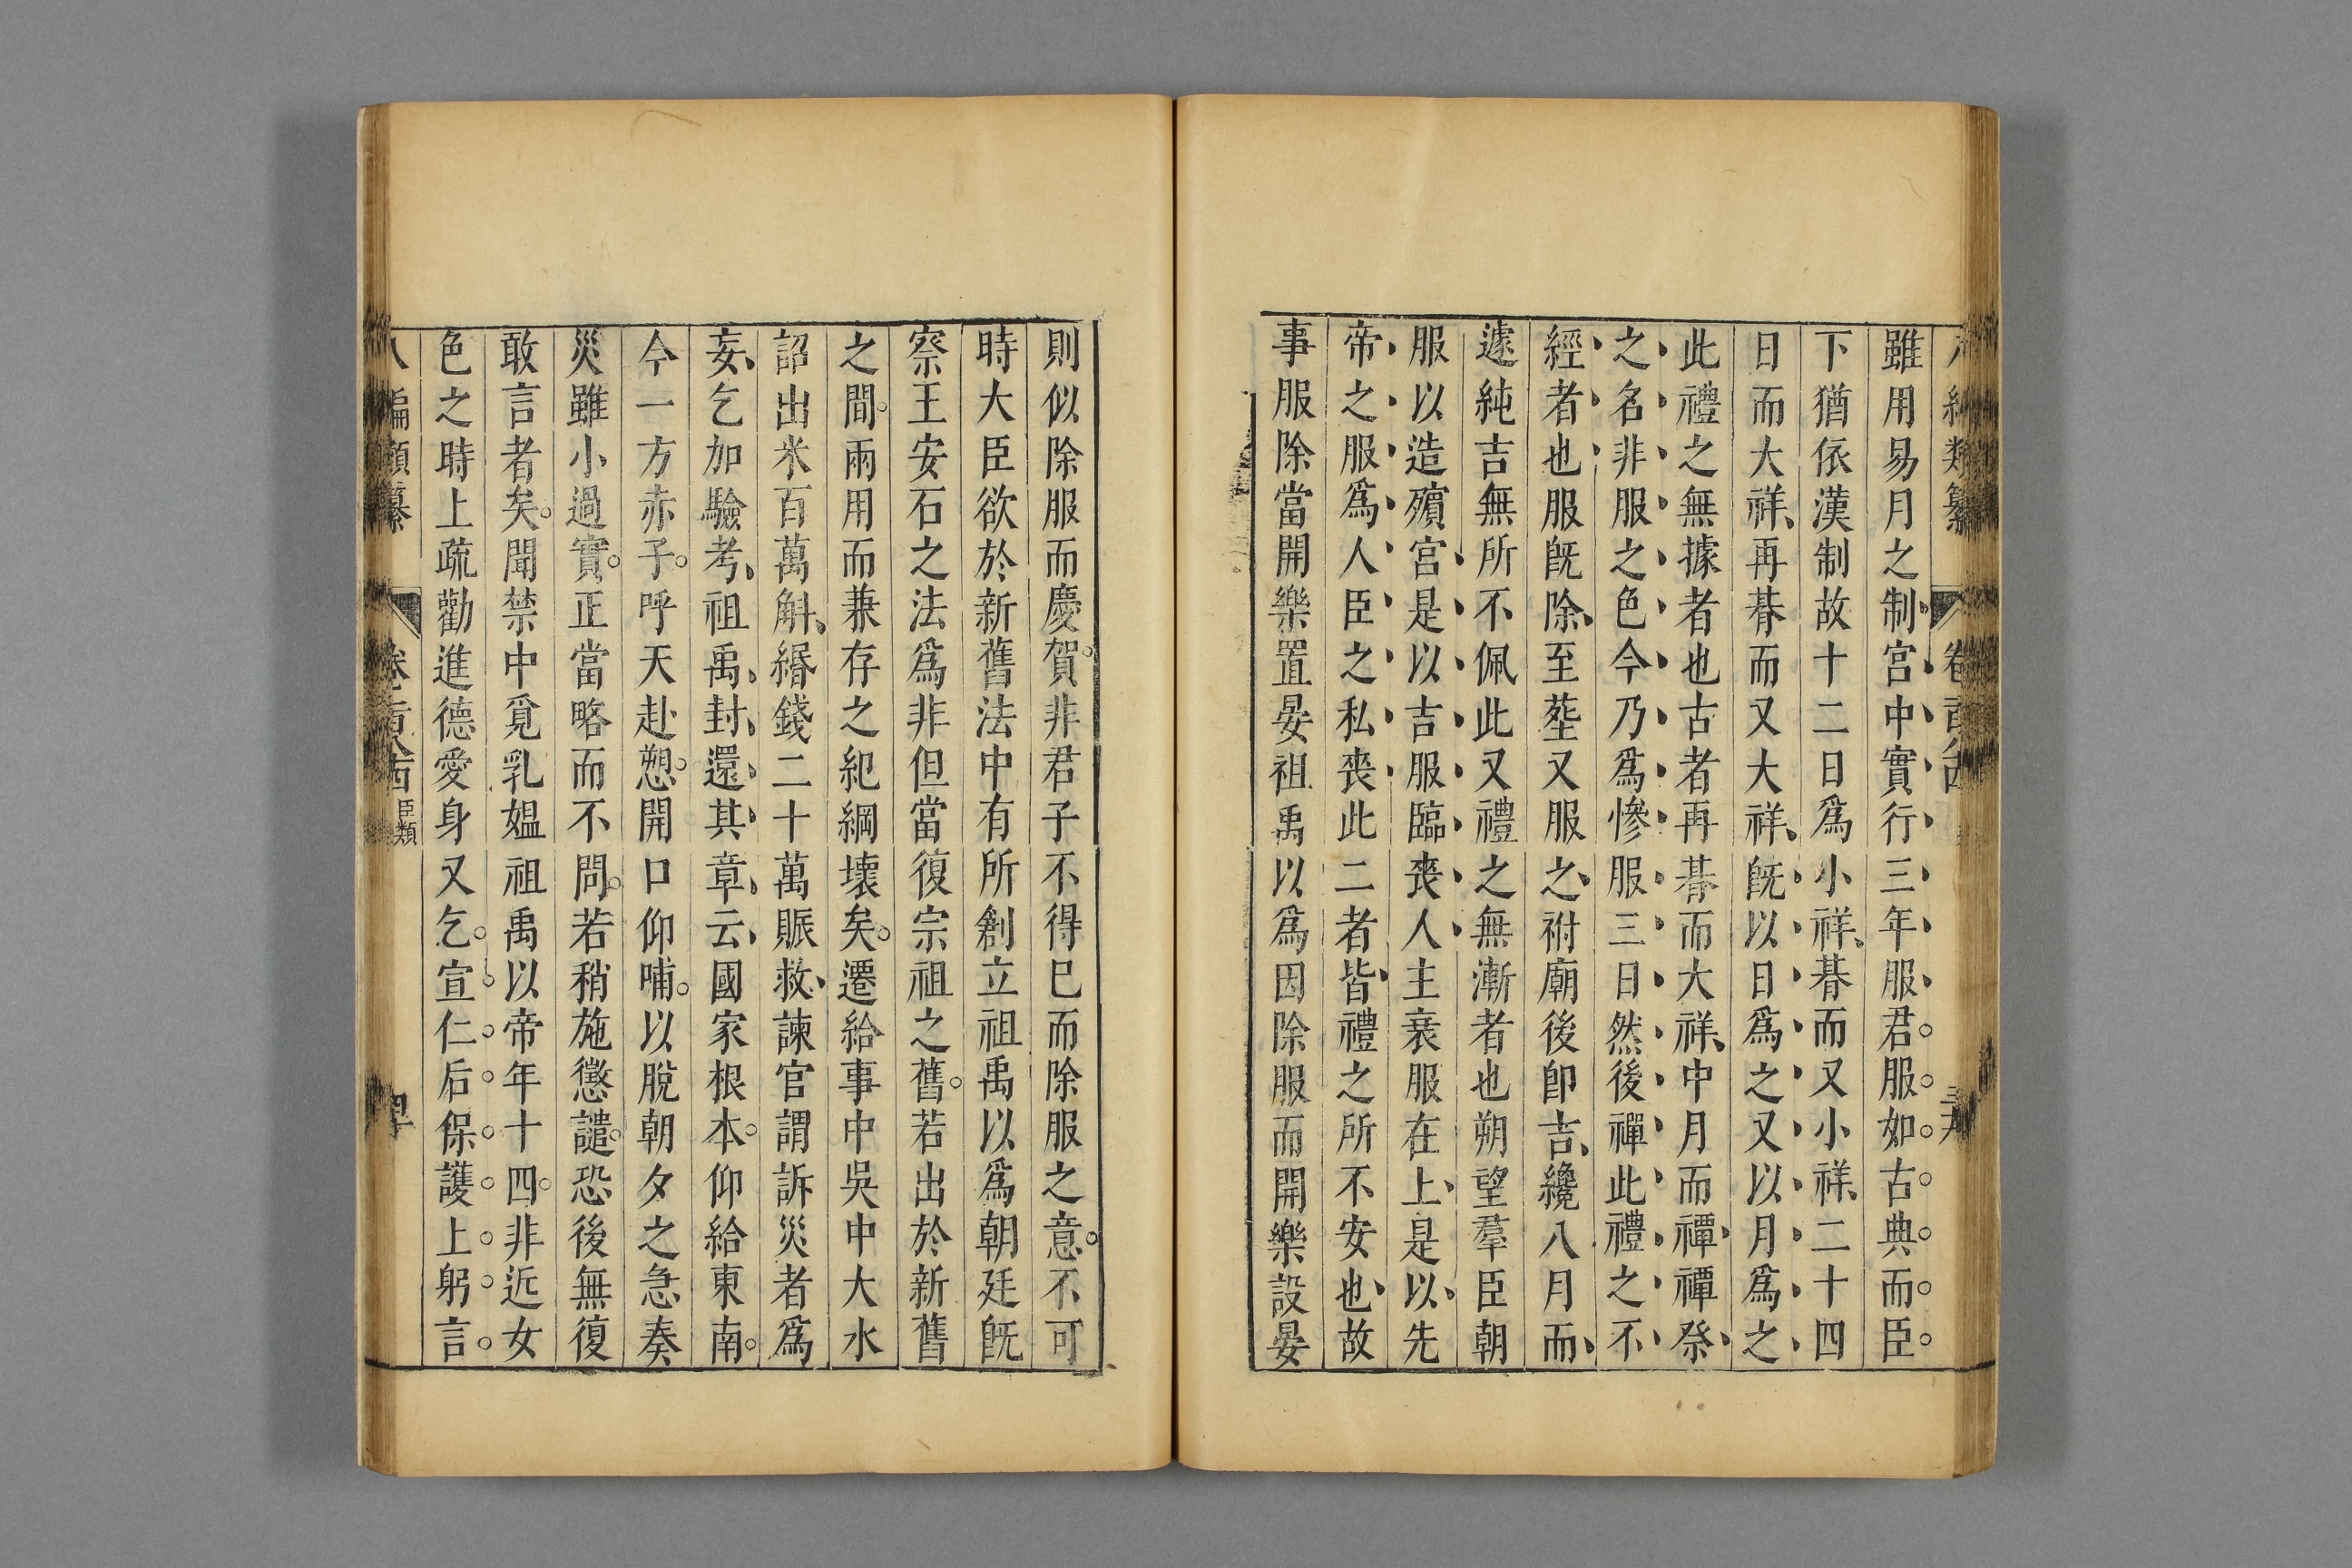 編類纂 卷百八古
雖用易月之制宮中實行三年服君服如古典而臣
下猶依漢制故十二日爲小祥朞而又小祥二十四
日而大祥再朞而又大祥旣以日爲之又以月爲之
此禮之無據者也古者再朞而大祥中月而禫禫祭
之名非服之色今乃爲慘服三日然後禫此禮之不
經者也服旣除至塟又服之祔廟後卽吉纔八月而
遽純吉無所不佩此又禮之無漸者也朔望羣臣朝
服以造殯宮是以吉服臨喪人主衰服在上是以先
帝之服爲人臣之私喪此二者皆禮之所不安也故
事服除當開樂置晏祖禹以爲因除服而開樂設晏
則似除服而慶賀非君子不得已而除服之意不可
時大臣欲於新舊法中有所創立祖禹以爲朝廷旣
察王安石之法爲非但當復宗祖之舊若出於新舊
之間兩用而兼存之紀綱壞矣遷給事中吳中大水
詔出米百萬斛緡錢二十萬賑救諫官謂訴災者爲
妄乞加驗考祖禹封還其章云國家根本仰給東南
今一方赤子呼天赴愬開口仰哺以脫朝夕之急奏
災雖小過實正當略而不問若稍施懲譴恐後無復
敢言者矣聞禁中覓乳媼祖禹以帝年十四非近女
色之時上疏勸進德愛身又乞宣仁后保護上躬言
八編類纂 卷百八古 臣類 四十